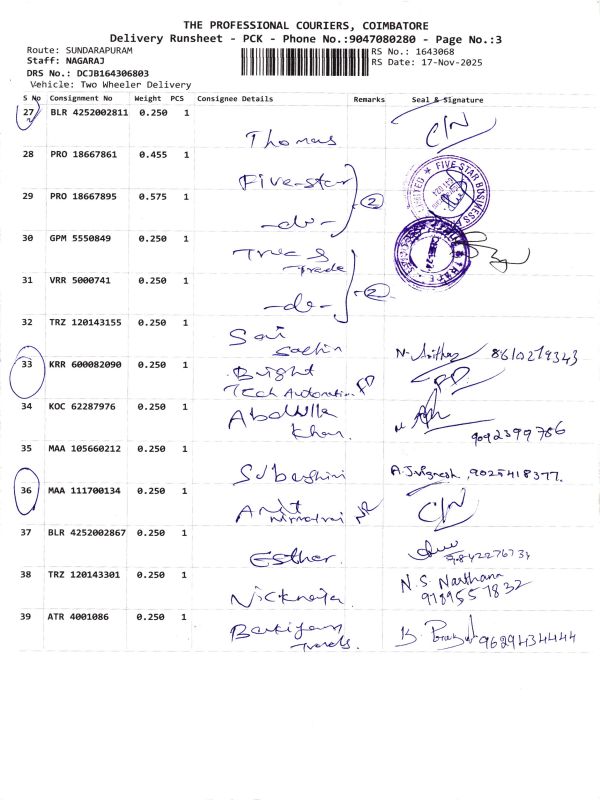 THE PROFESSIONAL COURIERS, COIMBATORE
Delivery Runsheet - PCK - Phone No.:9047080280 - Page No.:3
Route: SUNDARAPURAM
RS No.: 1643068
Staff: NAGARAJ
RS Date: 17-Nov-2025
DRS No.: DCJB164306803
Vehicle: Two Wheeler Delivery
S No Consignment No Weight PCS Consignee Details Remarks Seal & Signature
27 BLR 4252002811 0.250 1
Thomas C/N
28 PRO 18667861 0.455 1
Five-star
FIVE STAR BUSINESS
LIMITED
29 PRO 18667895 0.575 1
-do- 2
30 GPM 5550849 0.250 1
Trade
31 VRR 5000741 0.250 1
-do- 2
32 TRZ 120143155 0.250 1
Sai
Sachin 8610219343
33 KRR 600082090 0.250 1
Bright
Tech Automation FD FD
34 KOC 62287976 0.250 1
Abdulla
Khan. 9092399786
35 MAA 105660212 0.250 1
Subashini A. Jvignesh, 9025418377.
36 MAA 111700134 0.250 1
Amit NR C/N
37 BLR 4252002867 0.250 1
Esther.
38 TRZ 120143301 0.250 1
N.S. Narthana
9789557832
39 ATR 4001086 0.250 1
Travels. 9629434444